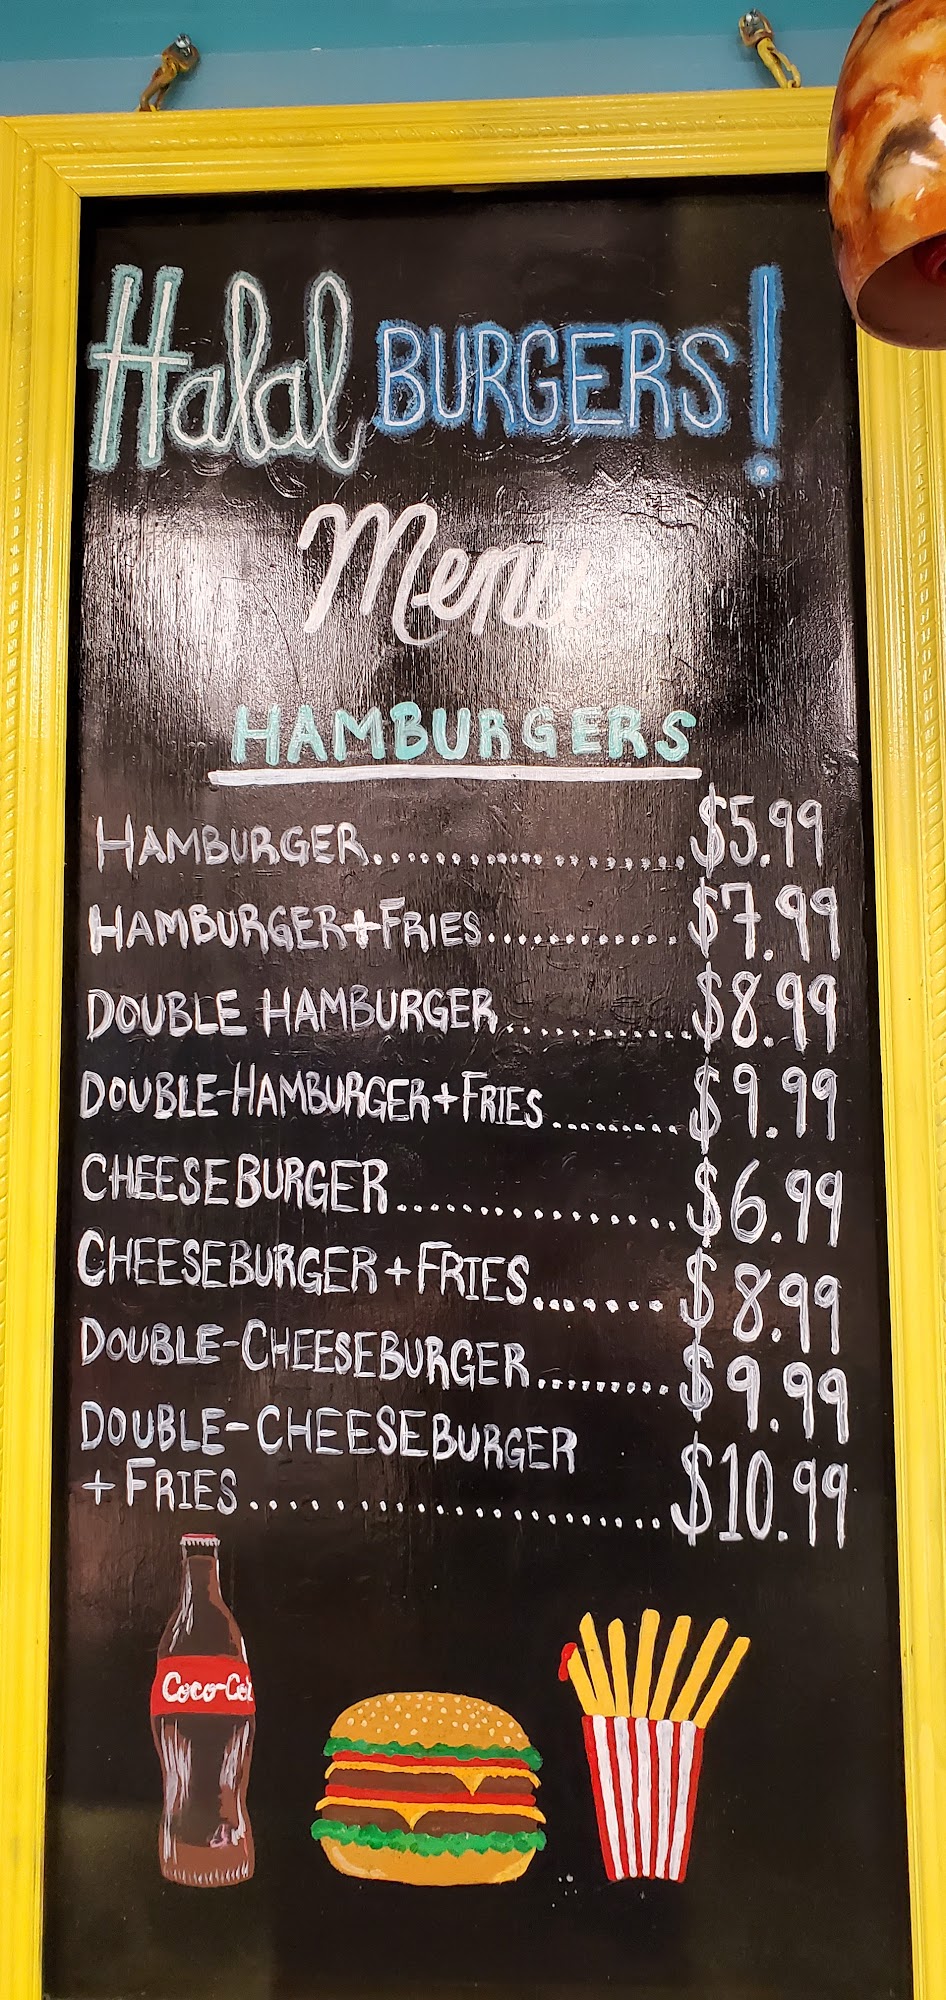 Halal BURGERS!
Menu
HAMBURGERS
HAMBURGER..........................$5.99
HAMBURGER+FRIES..............$7.99
DOUBLE HAMBURGER.............$8.99
DOUBLE-HAMBURGER+FRIES.........$9.99
CHEESEBURGER.................$6.99
CHEESEBURGER+FRIES.......$8.99
DOUBLE-CHEESEBURGER.........$9.99
DOUBLE-CHEESEBURGER
+FRIES......................$10.99
Coco-Col